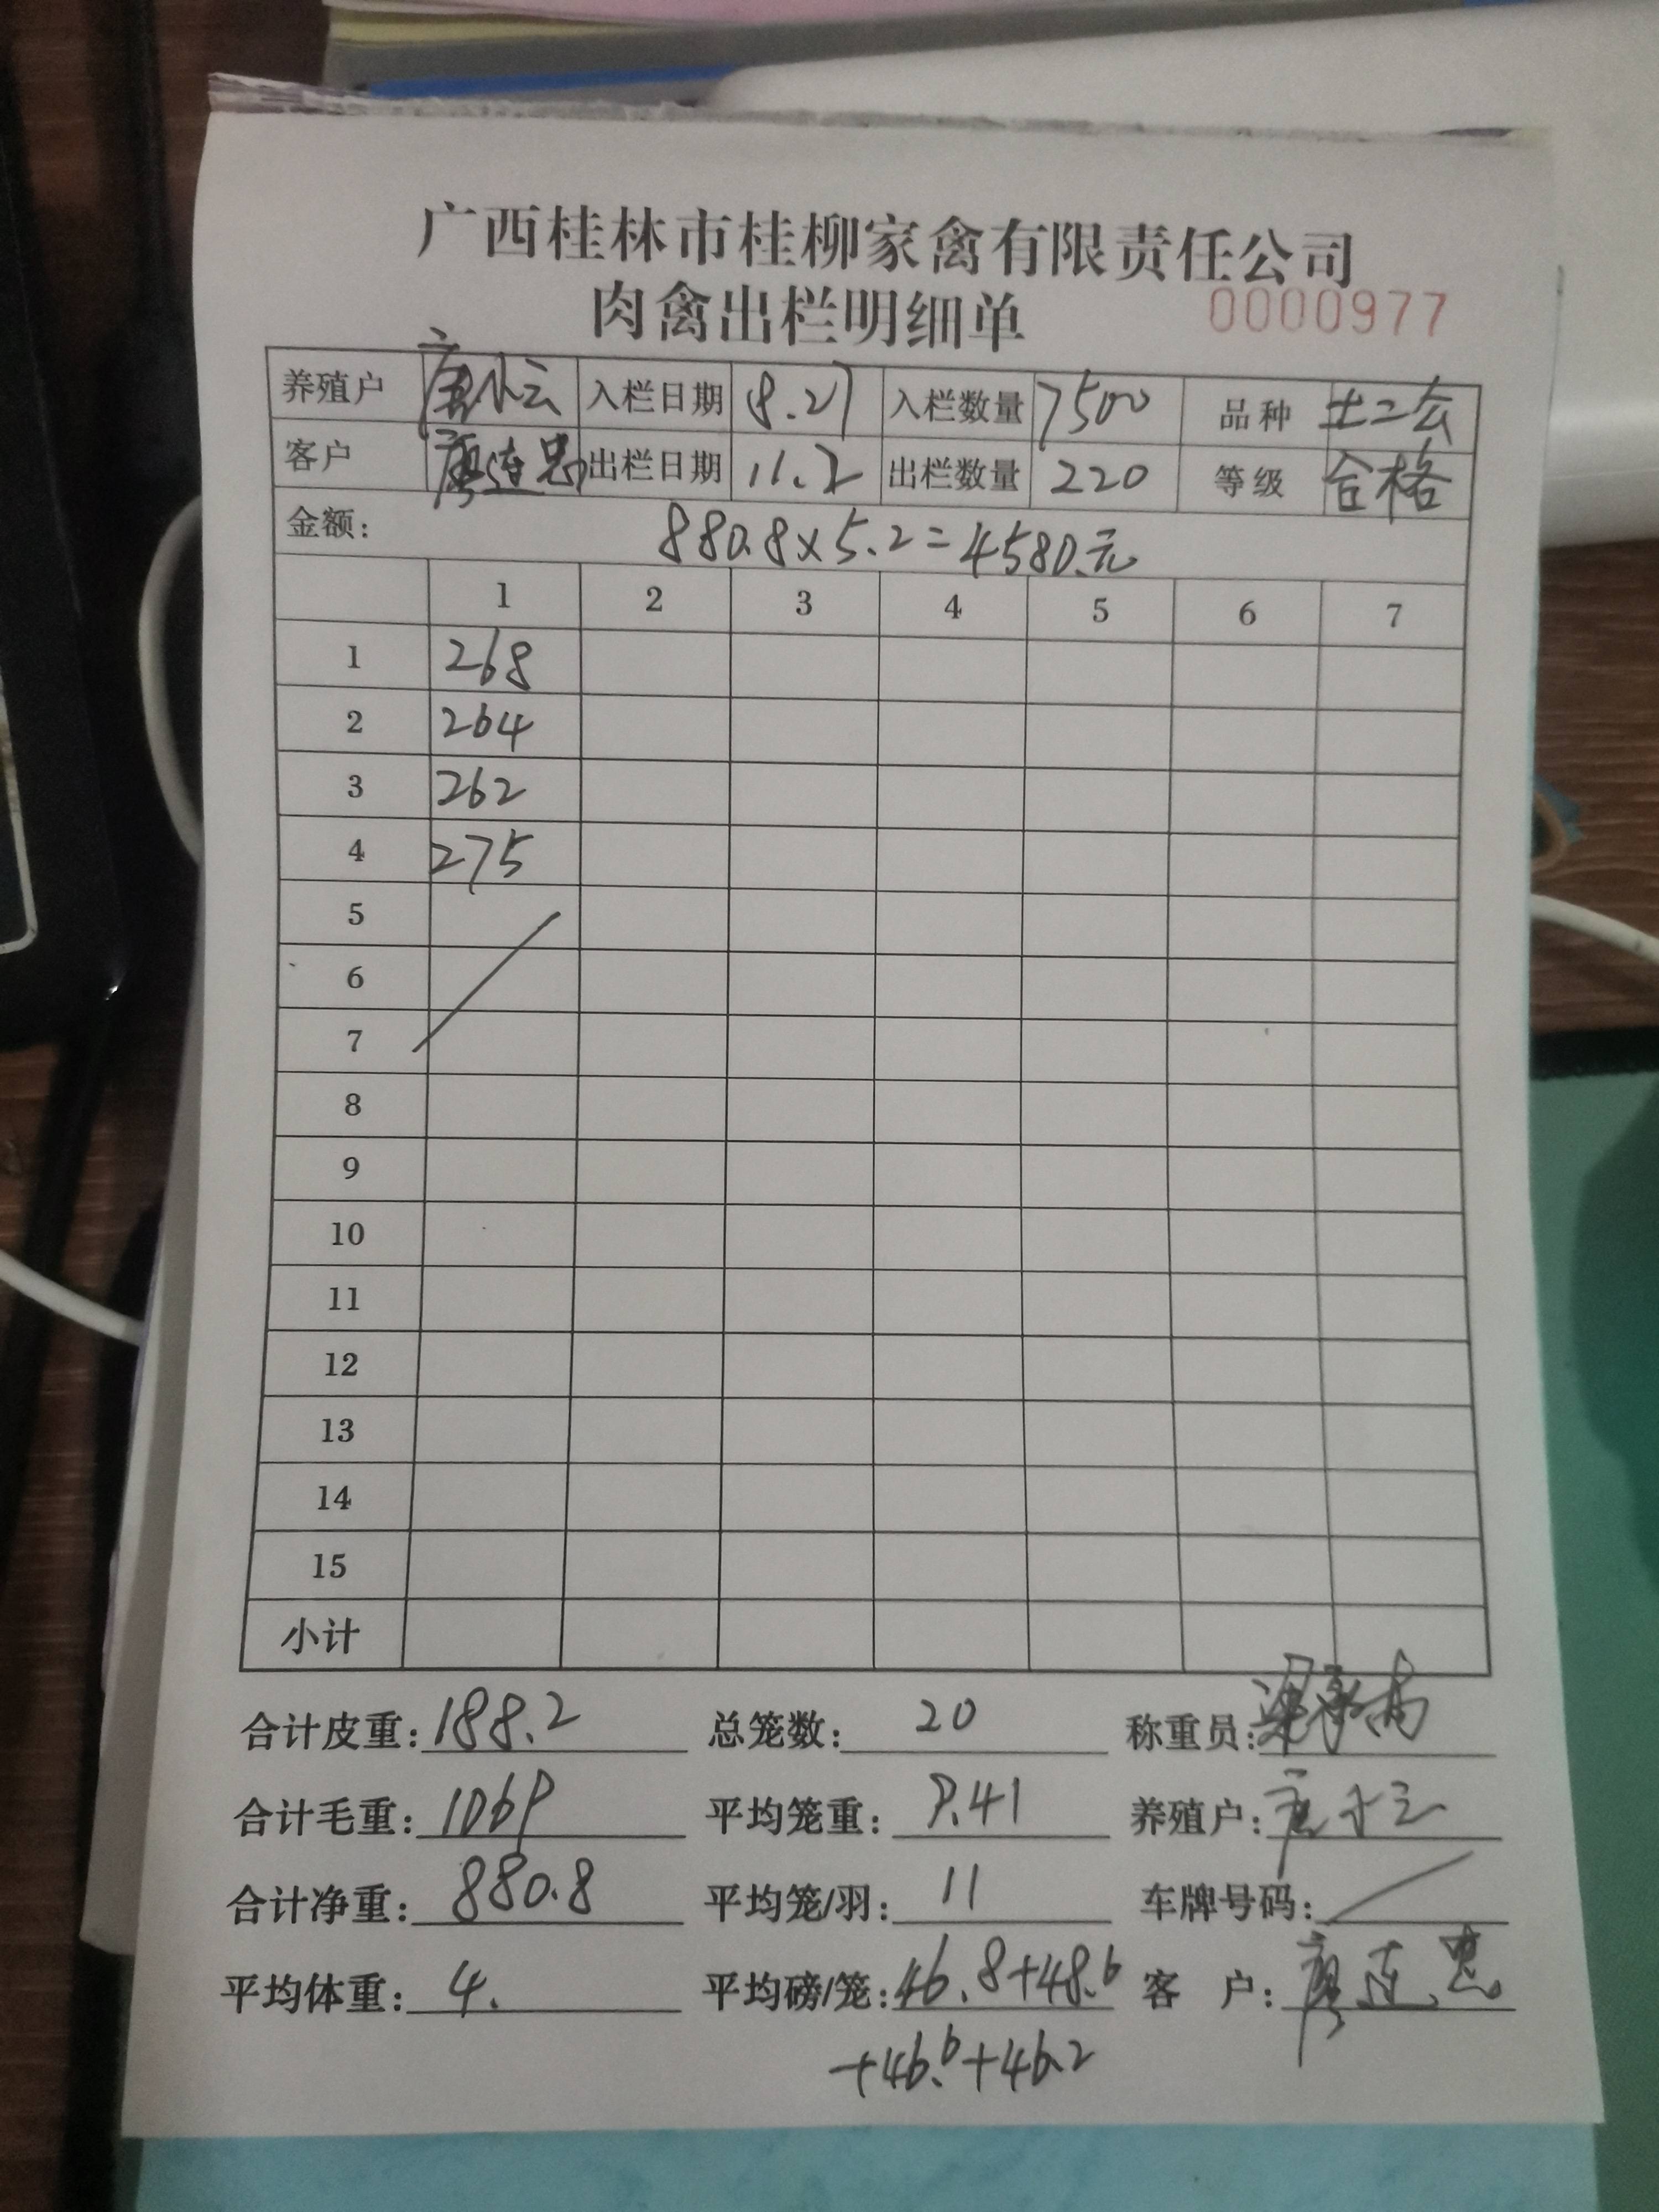 广西桂林市桂柳家禽有限责任公司
肉禽出栏明细单 0000977
养殖户 唐小云 入栏日期 8.27 入栏数量 7500 品种 土二公
客户 廖连忠 出栏日期 11.2 出栏数量 220 等级 合格
金额: 880.8×5.2=4580.元
1 2 3 4 5 6 7
1 268
2 264
3 262
4 275
5
6
7
8
9
10
11
12
13
14
15
小计
合计皮重: 188.2 总笼数: 20 称重员:
合计毛重: 1069 平均笼重: 9.41 养殖户: 唐小云
合计净重: 880.8 平均笼/羽: 11 车牌号码: /
平均体重: 4. 平均磅/笼: 46.8+48.6 客 户: 廖连忠
+46.6+46.2